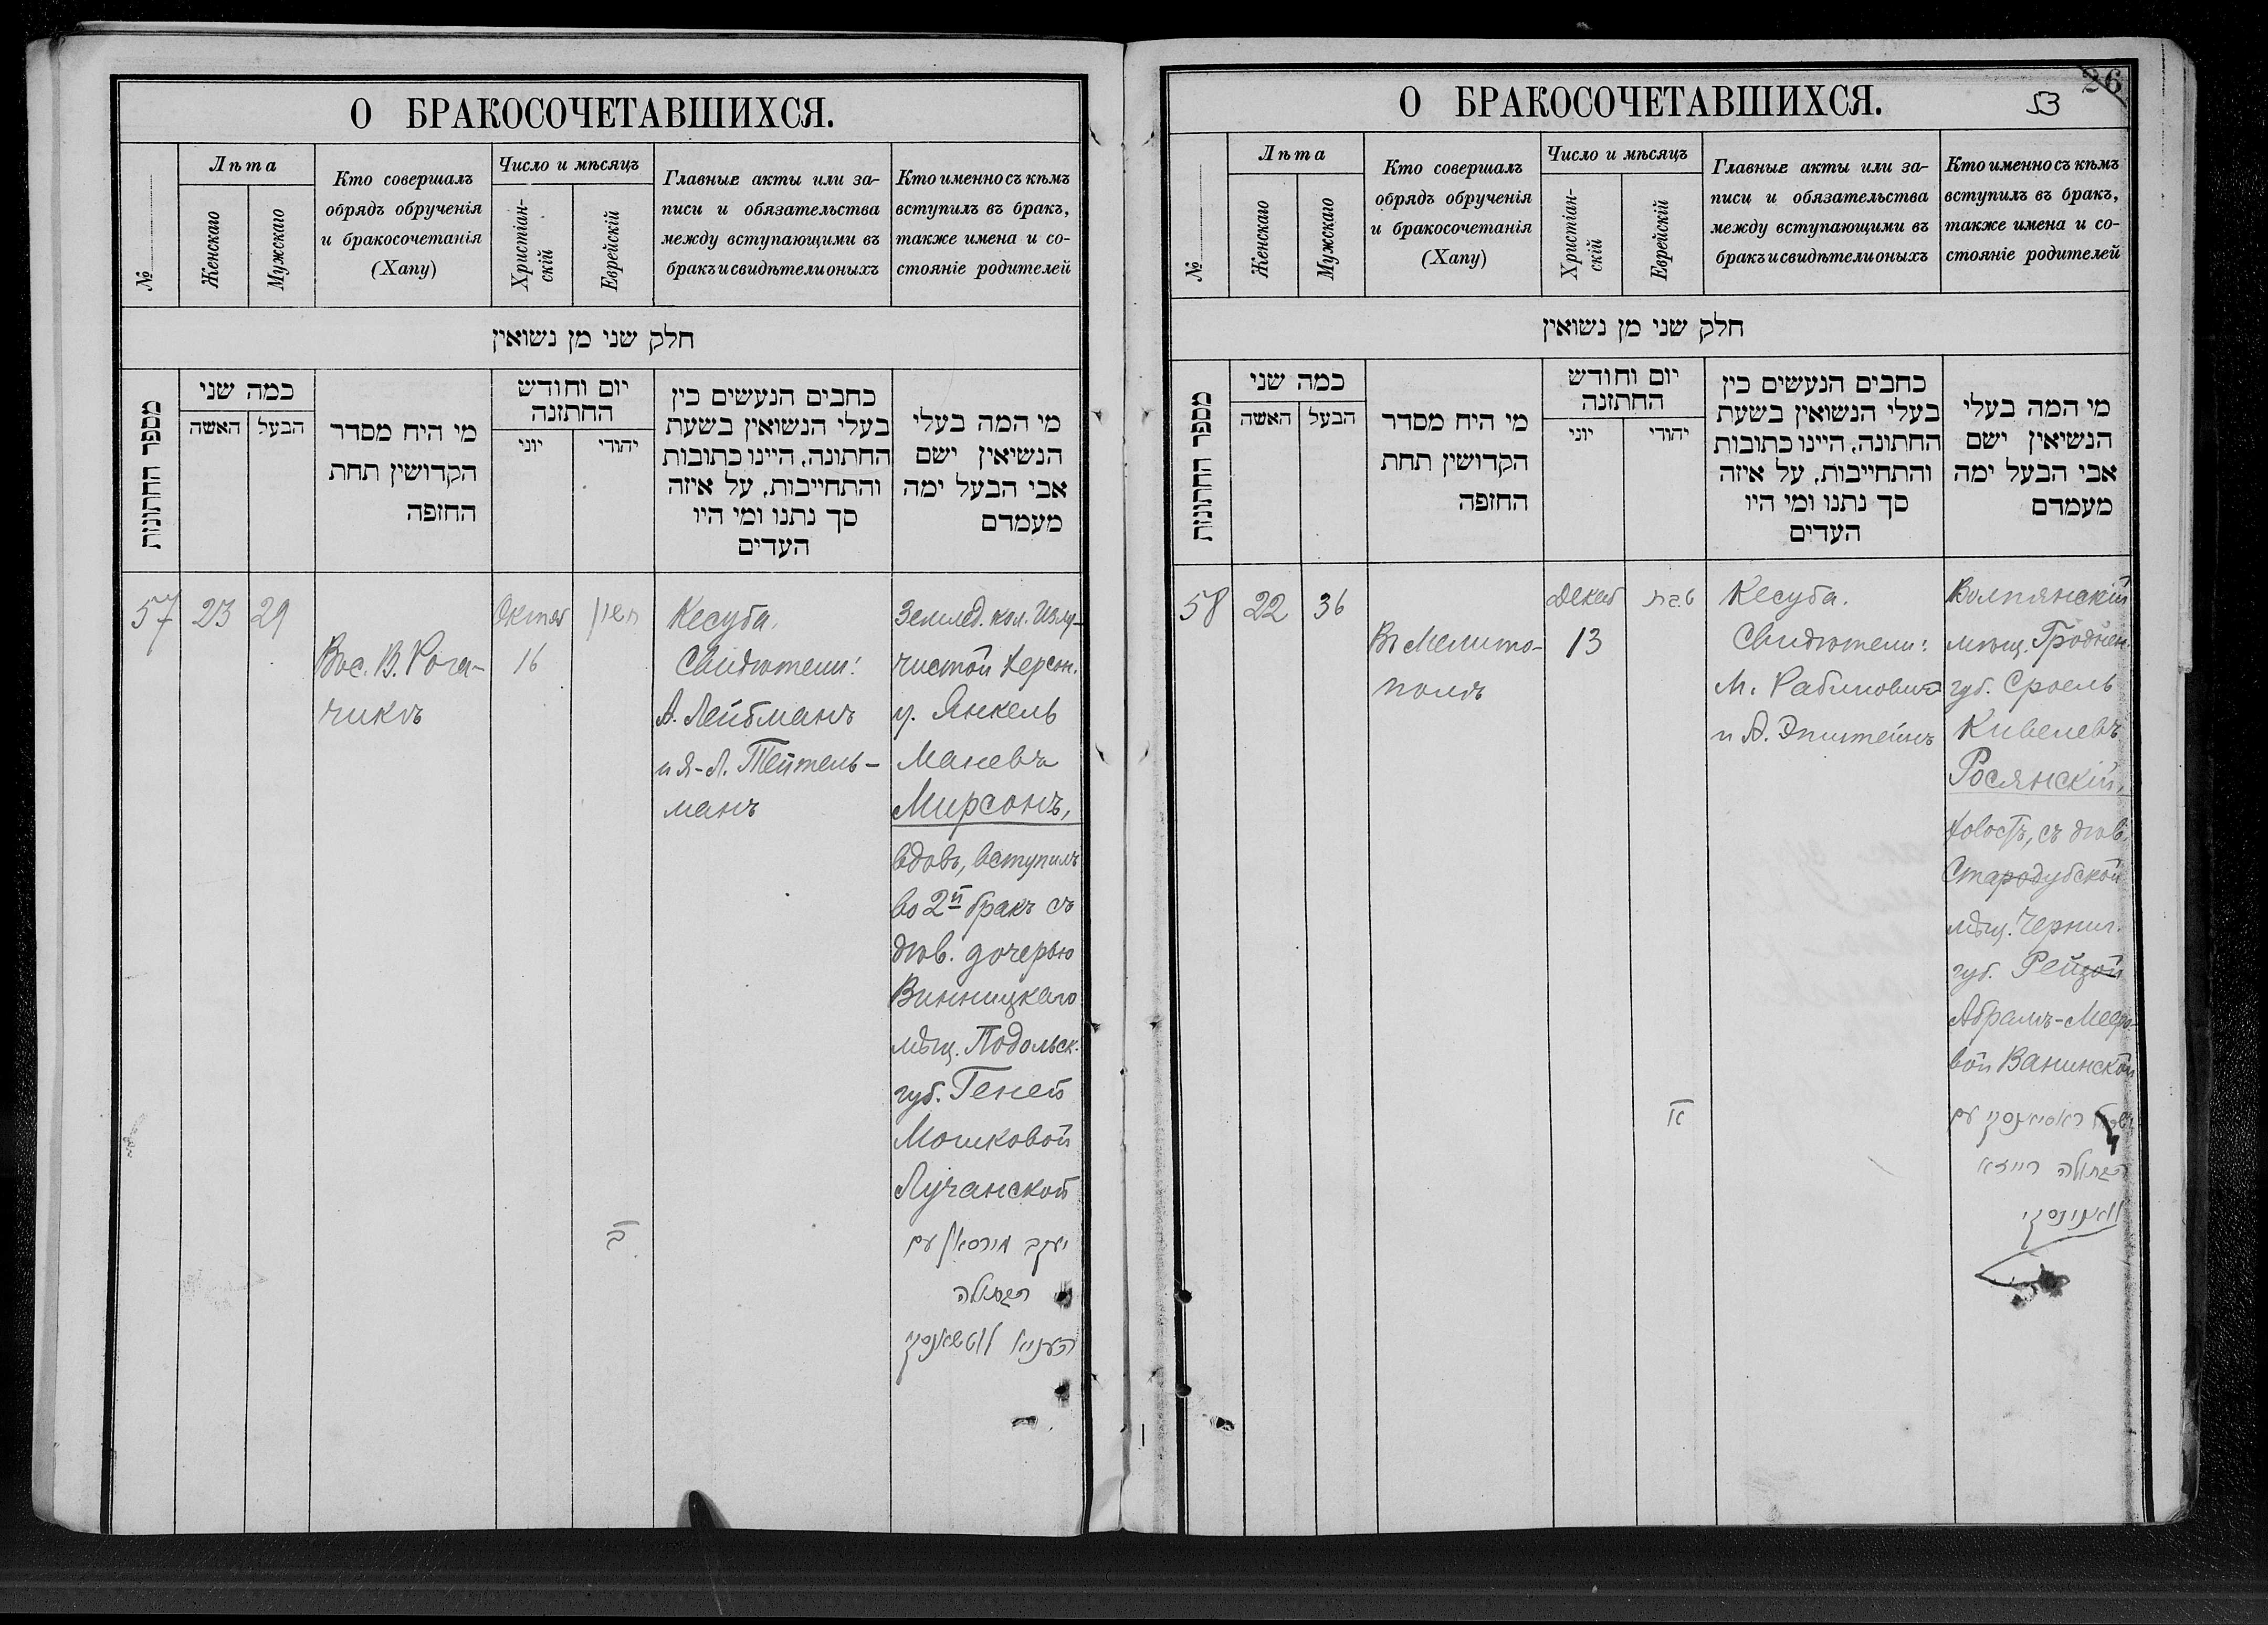 О БРАКОСОЧЕТАВШИХСЯ.
№
Лѣта
Женскаго
Мужскаго
Кто совершалъ
обрядъ обрученія
и бракосочетанія
(Хапу)
Число и мѣсяцъ
Христіан-
скій
Еврейскій
Главныя акты или за-
писи и обязательства
между вступающими въ
бракъ и свидѣтели оныхъ
Кто именно съ кѣмъ
вступилъ въ бракъ,
также имена и со-
стояніе родителей
חלק שני מן נשואין
מספר החתונות
כמה שני
האשה
הבעל
מי היח מסדר
הקדושין תחת
החזפה
יום וחודש
החתזנה
יוני
יהודי
כחבים הנעשים כין
בעלי הנשואין בשעת
החתונה, היינו כתובות
והתחייבות, על איזה
סך נתנו ומי היו
העדים
מי המה בעלי
הנשיאין ישם
אבי הבעל ימה
מעמדם
57
23
29
Вос. В. Рога-
чикъ
Октяб
16
חשון
ב
Кесуба.
Свидѣтели:
А. Лейбманъ
и Я-Л. Тейтель-
манъ
Землед. кол. Излу-
чистой Херсон.
у. Янкель
Маневъ
Мирсонъ,
вдовъ, вступилъ
во 2й бракъ съ
дѣв. дочерью
Винницкаго
мѣщ. Подольск.
губ. Геней
Мошковой
Лучанской
יעקב מירסאן עם
הבתולה
העניא לוטשאנסקי
О БРАКОСОЧЕТАВШИХСЯ.
26
53
№
Лѣта
Женскаго
Мужскаго
Кто совершалъ
обрядъ обрученія
и бракосочетанія
(Хапу)
Число и мѣсяцъ
Христіан-
скій
Еврейскій
Главныя акты или за-
писи и обязательства
между вступающими въ
бракъ и свидѣтели оныхъ
Кто именно съ кѣмъ
вступилъ въ бракъ,
также имена и со-
стояніе родителей
חלק שני מן נשואין
מספר החתונות
כמה שני
האשה
הבעל
מי היח מסדר
הקדושין תחת
החזפה
יום וחודש
החתזנה
יוני
יהודי
כחבים הנעשים כין
בעלי הנשואין בשעת
החתונה, היינו כתובות
והתחייבות, על איזה
סך נתנו ומי היו
העדים
מי המה בעלי
הנשיאין ישם
אבי הבעל ימה
מעמדם
58
22
36
Въ Мелито-
полѣ
Декаб
13
טבת
Кесуба.
Свидѣтели:
М. Рабиновичъ
и А. Эпштейнъ
Волпянскій
мѣщ. Гроднен.
губ. Сроель
Кивелевъ
Росянскій,
холостъ, съ дѣв.
Стародубской
мѣщ. Черниг.
губ. Рейзой
Абрамъ-Мееро-
вой Ванинской
ישראל ראסיאנסקי עם
הבתולה רייזא
וואנינסקי